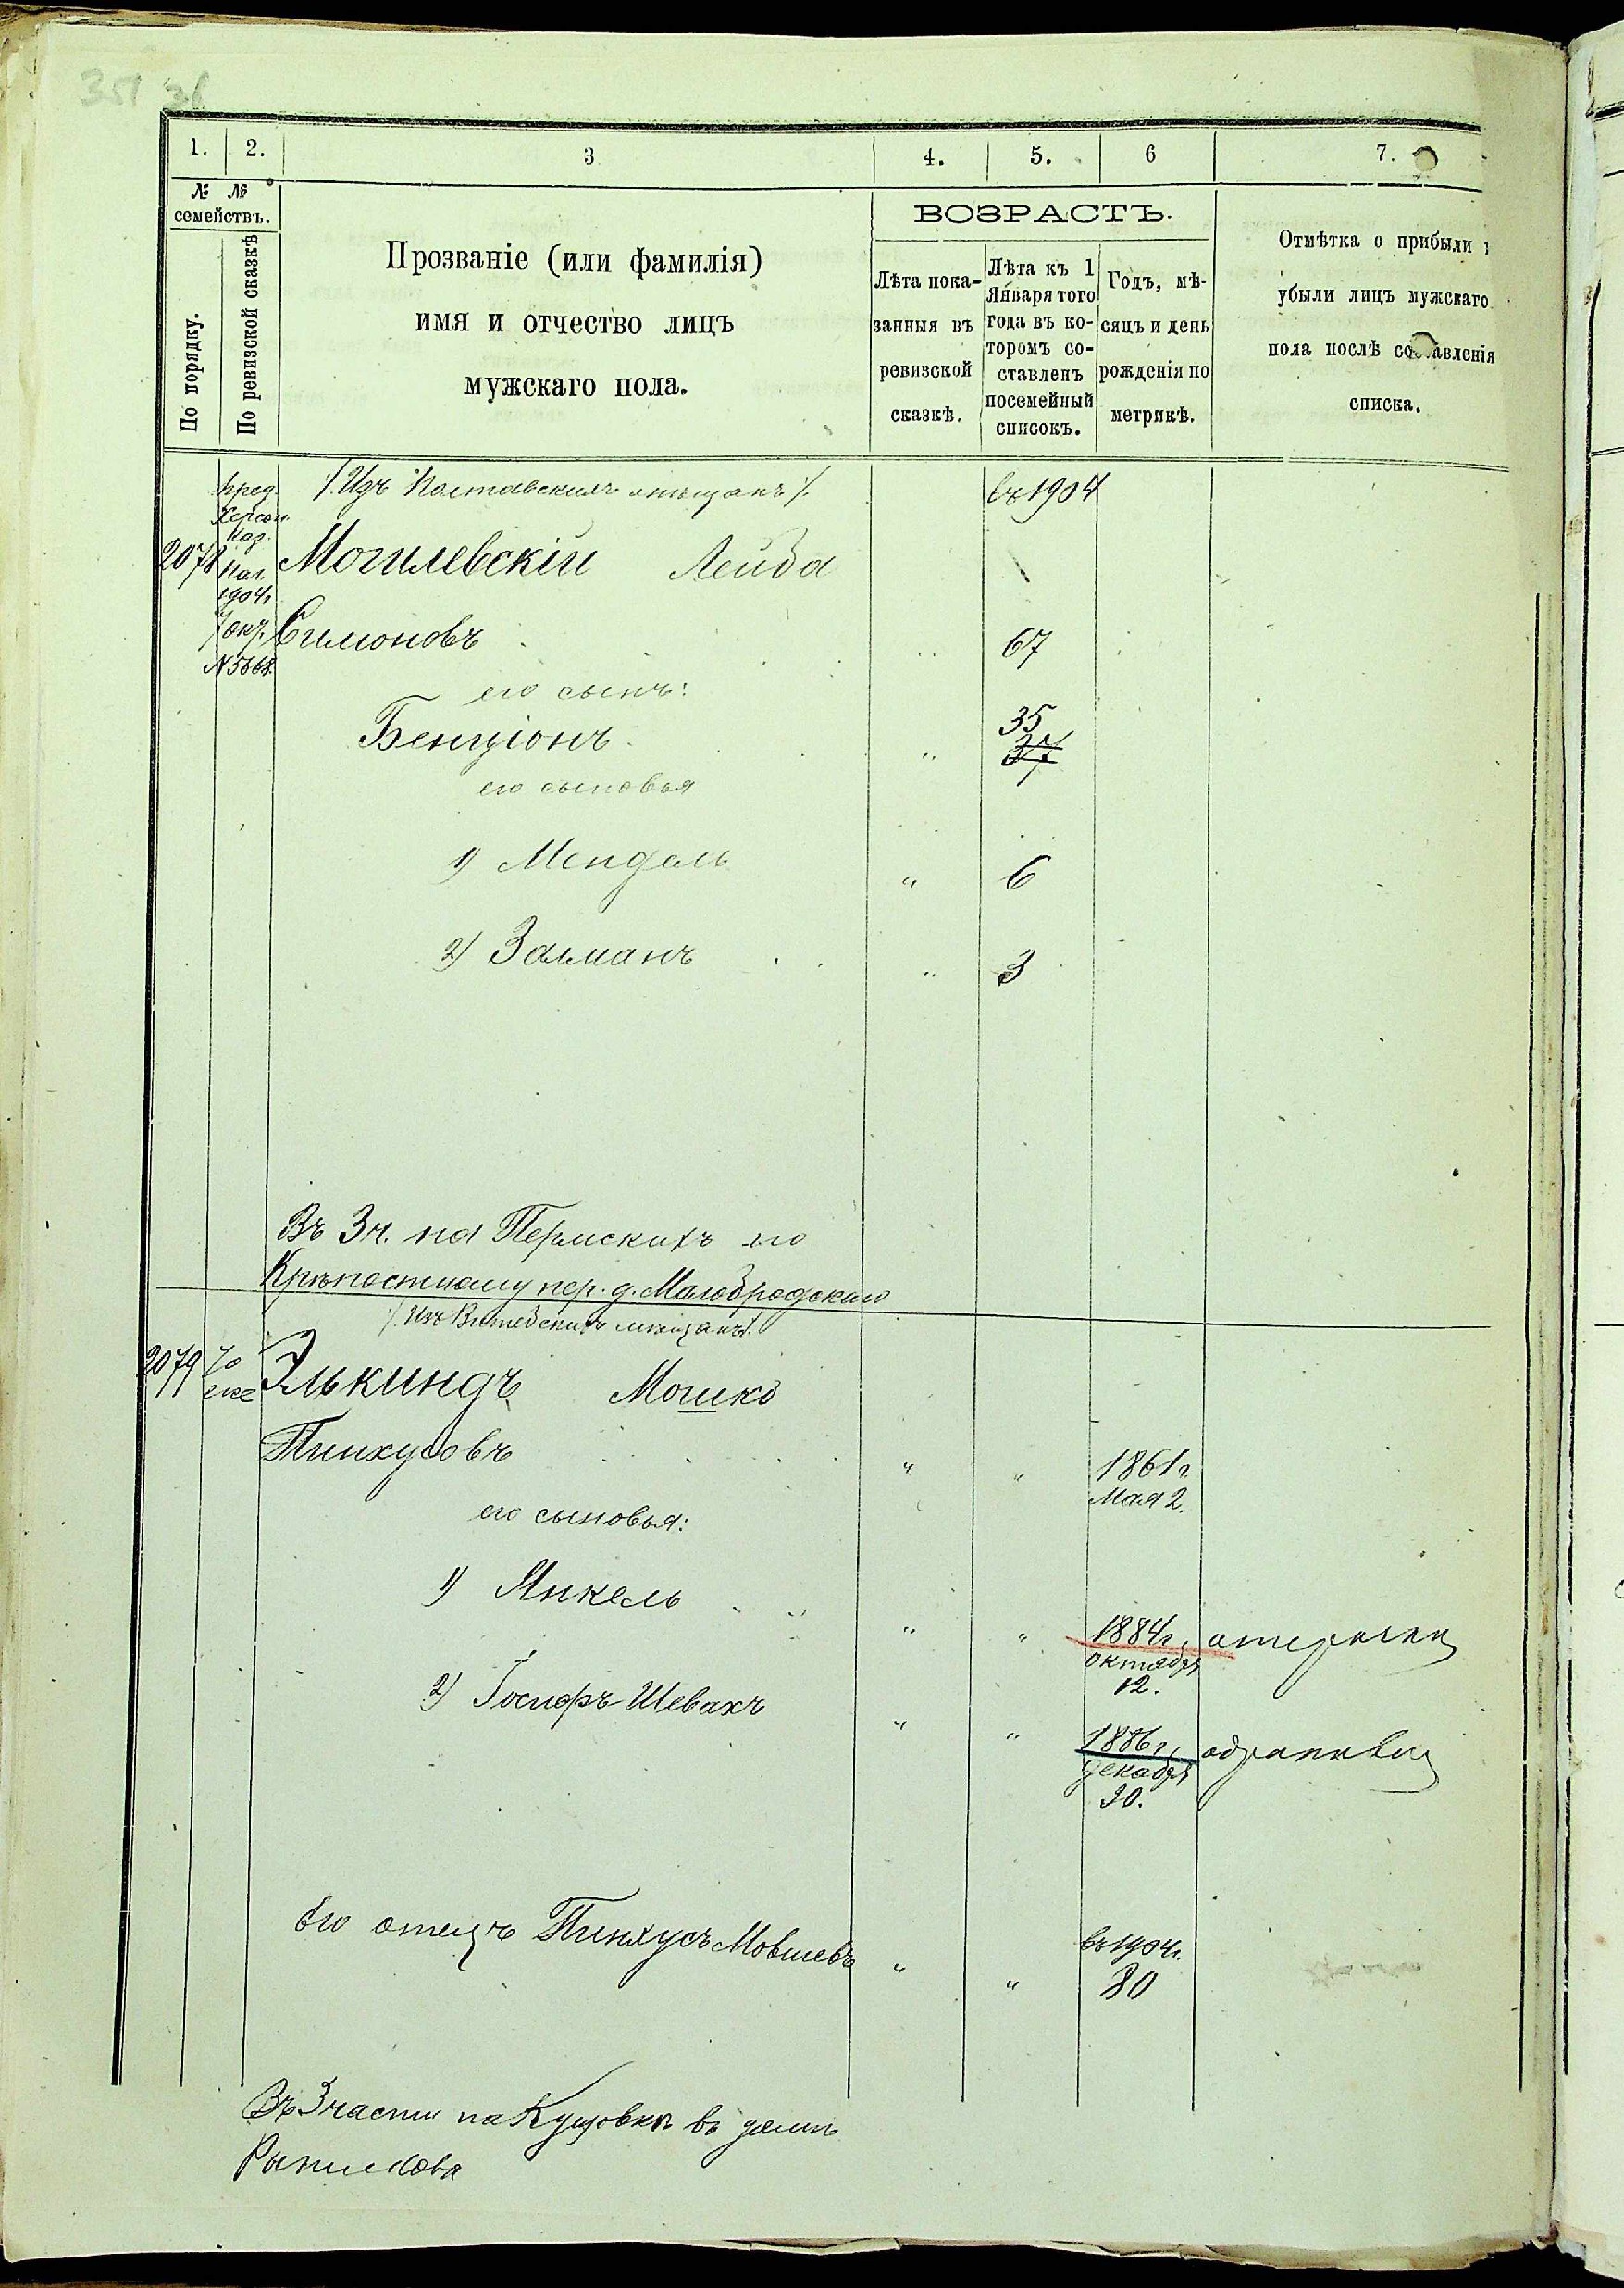 351 36
1. 2. 3 4. 5. 6 7.
№ №
семействъ.
По порядку.
По ревизской сказкѣ
Прозваніе (или фамилія)
имя и отчество лицъ
мужскаго пола.
ВОЗРАСТЪ.
Лѣта пока-
занныя въ
ревизской
сказкѣ.
Лѣта къ 1
Января того
года въ ко-
торомъ со-
ставленъ
посемейный
списокъ.
Годъ, мѣ-
сяцъ и день
рожденія по
метрикѣ.
Отмѣтка о прибыли
убыли лицъ мужскаго
пола послѣ составленія
списка.
пред.
Херсон.
Каз.
Пал.
1904г.
7 окт.
№ 5668
/. Изъ Полтавскихъ мѣщанъ /.
въ 1904
2078 Могилевскій Лейба
Симоновъ 67
его сынъ:
35
Бенціонъ 37
его сыновья
1) Мендель " 6
2) Залманъ " 3
Въ 3 ч. на Пермскихъ по
Крѣпостному пер. д. Малобродскаго
/. Изъ Витебскихъ мѣщанъ /.
2079 То же Элькиндъ Мошко
Пинхусовъ " " 1861 г.
Мая 2.
его сыновья:
1) Янкель " " 1884 г.
октября
12.
2) Іосифъ-Шевахъ " " 1886 г.
декабря
30.
Его отецъ Пинхусъ Мовшевъ " " въ 1904 г.
80
Въ 3 части на Кущовкѣ въ домѣ